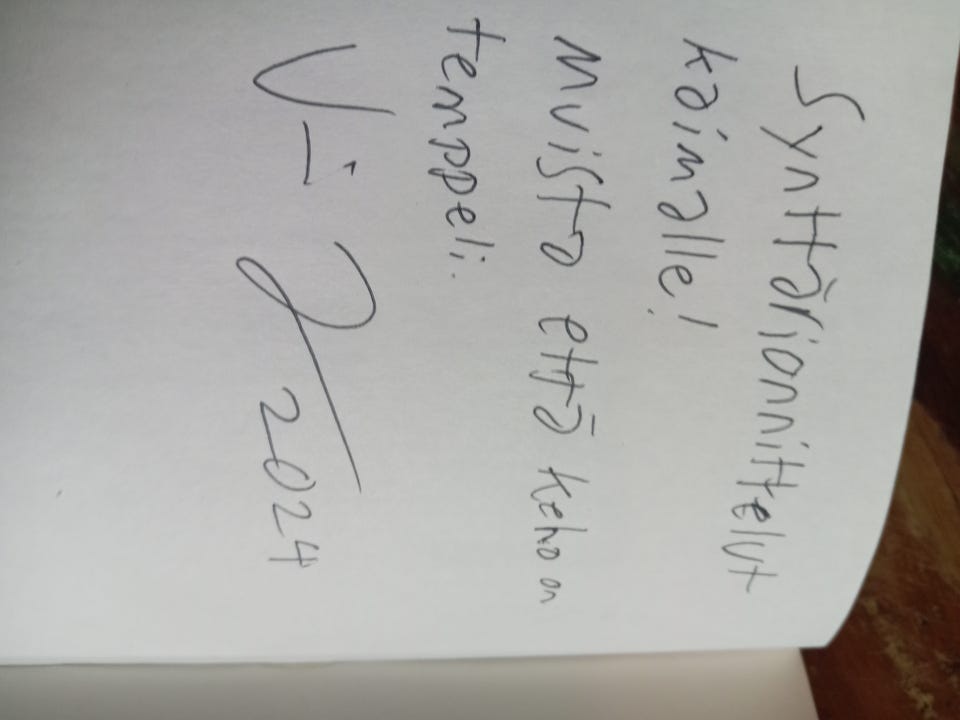 Synttärionnittelut
kaimalle!
Muista että keho on
temppeli.
2024